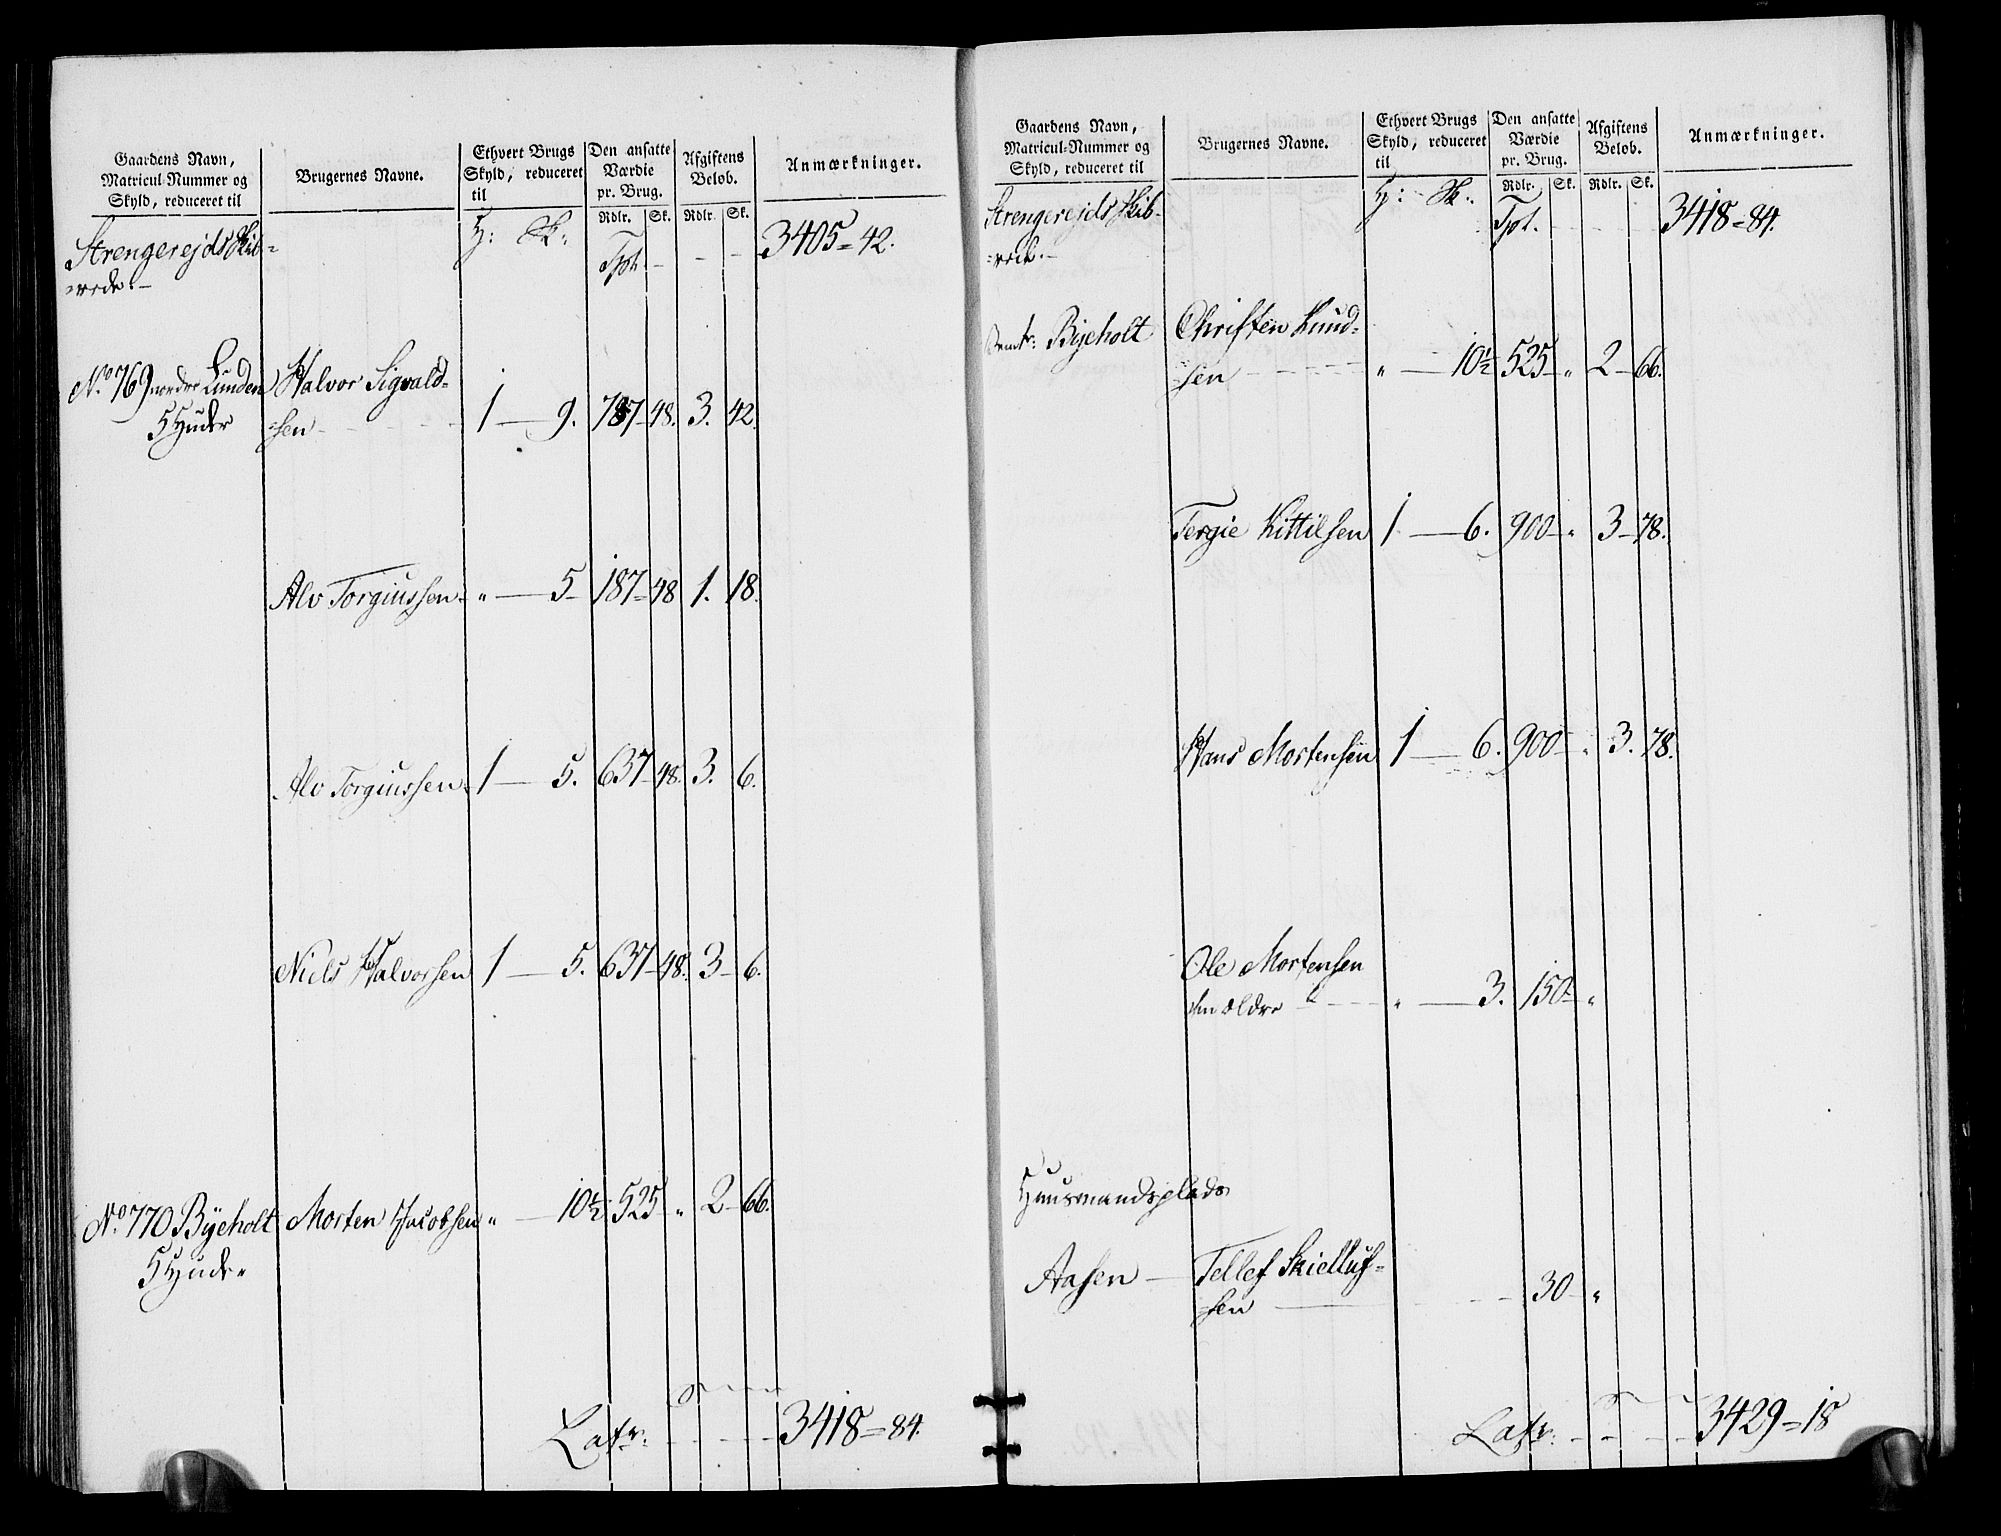 Gaardens Navn, Matricul-Nummer og Skyld, reduceret til
Brugernes Navne.
Ethvert Brugs Skyld, reduceret til
Den ansatte Værdie pr. Brug.
Afgiftens Beløb.
Anmærkninger.
Rdlr. Sk. Rdlr. Sk.
Strengerejds Skib-
=rede.
H: Sk: Tpt. - - - 3405 = 42.
No. 769 nordre Lunden Halvor Sigvald-
5 Huder =sen - - - 1 — 9. 787 - 48. 3. 42.
Alv Torgiussen - " — 5 - 187 = 48 1. 18.
Alv Torgiussen 1 — 5. 637 - 48. 3. 6.
Niels Halvorsen 1 — 5. 637 - 48. 3 - 6.
No. 770 Byeholt Morten Jacobsen " — 10½ 525 " 2 - 66.
5 Huder
Latr: - - - 3418 = 84.
Gaardens Navn, Matricul-Nummer og Skyld, reduceret til
Brugernes Navne.
Ethvert Brugs Skyld, reduceret til
Den ansatte Værdie pr. Brug.
Afgiftens Beløb.
Anmærkninger.
Rdlr. Sk. Rdlr. Sk.
Strengerejds Skib-
=rede.
H: Sk: Tpt. - - - 3418 = 84.
Byeholt Christen Knud-
=sen - - - " — 10½ 525 - " 2 - 66.
Tergie Kittilsen 1 — 6. 900 - " 3 - 78.
Hans Mortensen 1 — 6. 900 - " 3. 78.
Ole Mortensen
den ældre - - - " — 3. 150 - "
Huusmandsplads
Aasen — Tellef Skielluf-
=sen — 30 - "
Latr: - - - 3429 = 18